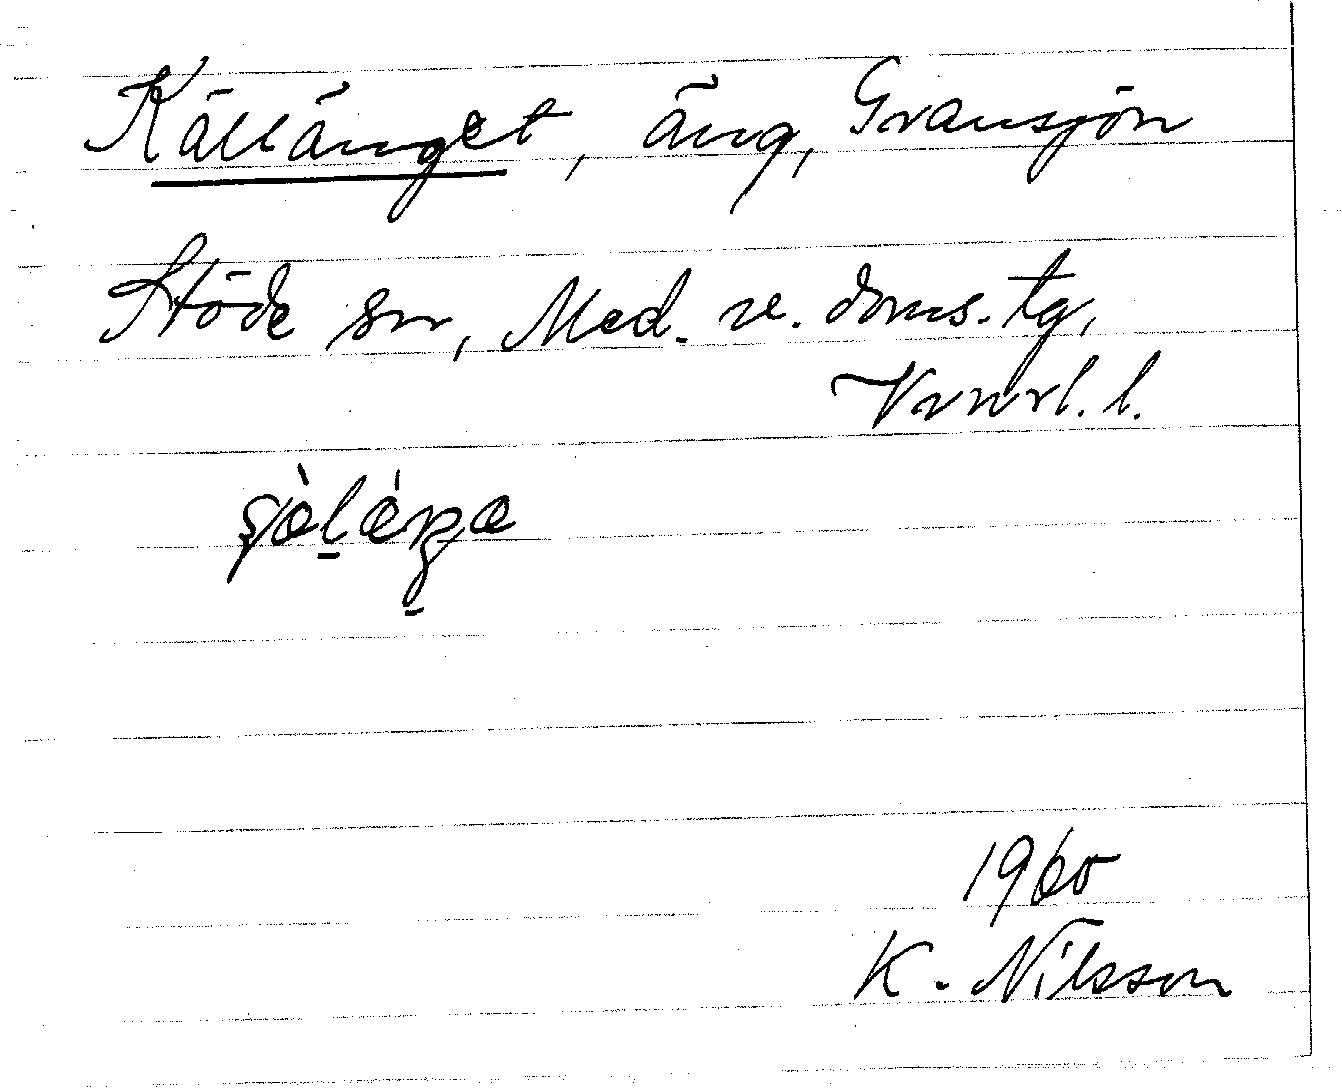 Källänget, äng, Gransjön
Stöde sn, Med. v. doms. tg,
Vrnrl. l.
1960
K. Nilsson